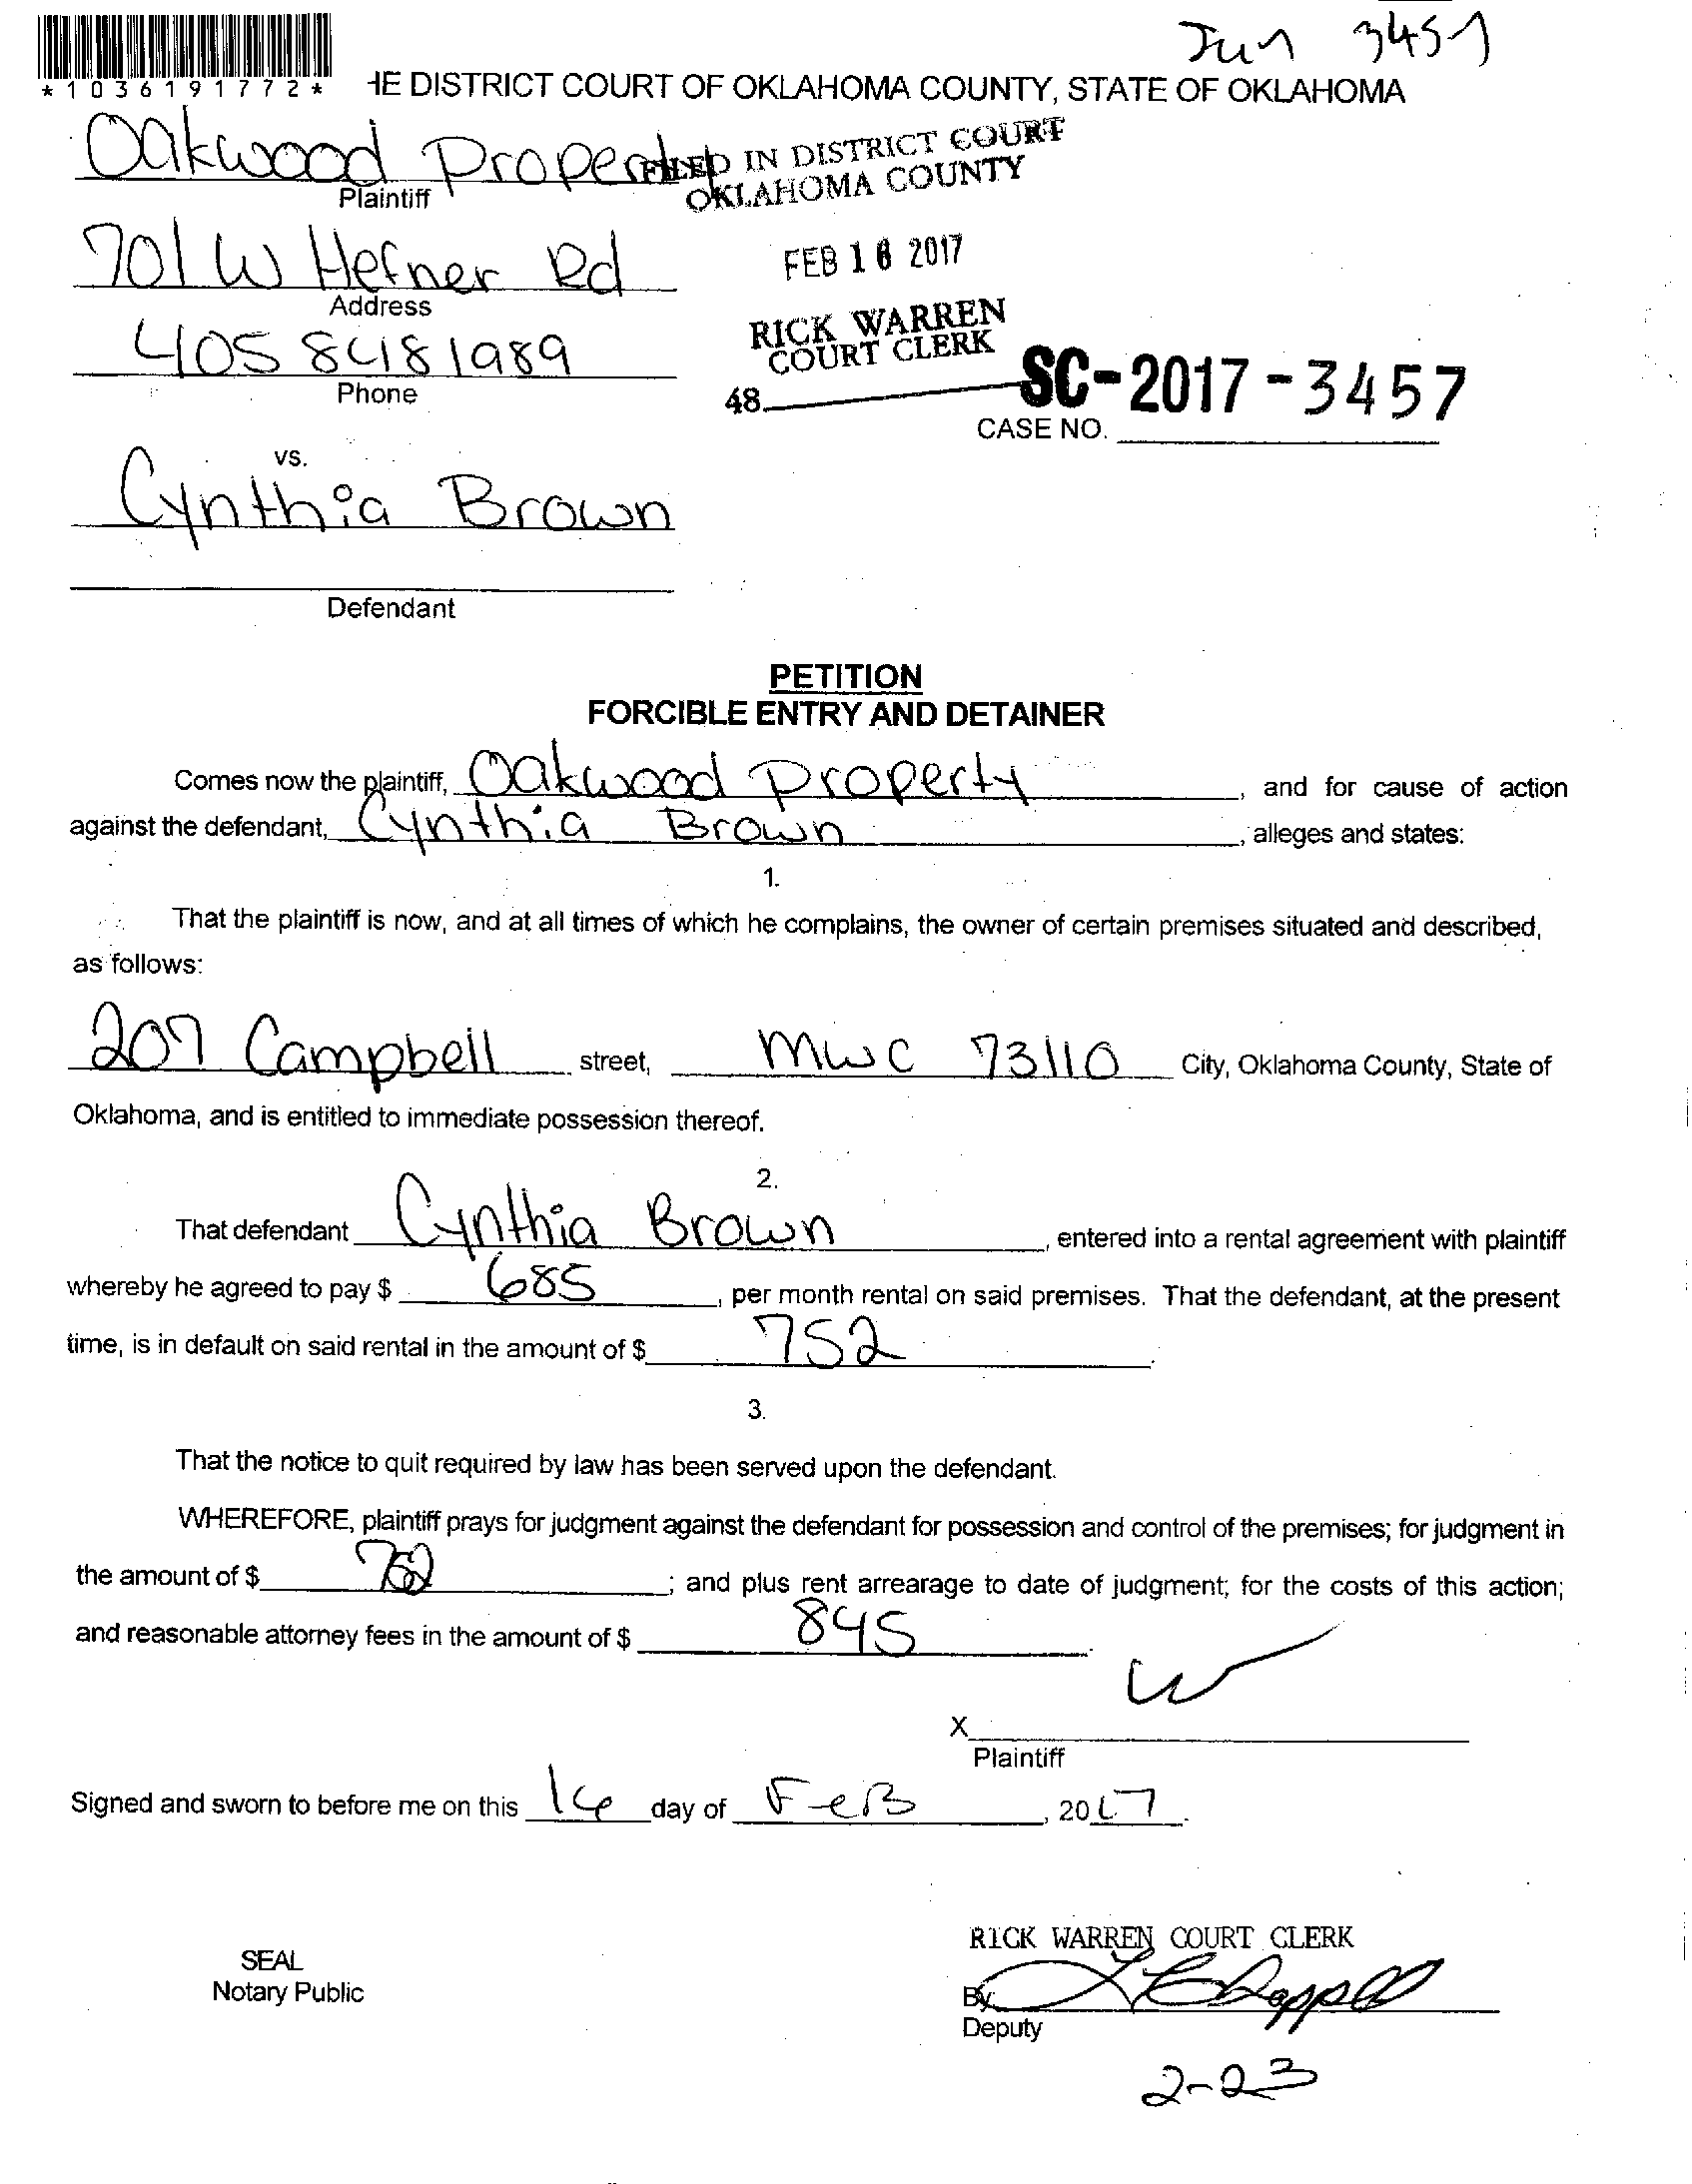 Jun 3457
*1036191772*
HE DISTRICT COURT OF OKLAHOMA COUNTY, STATE OF OKLAHOMA
Oakwood Property
Plaintiff
FILED IN DISTRICT COURT
OKLAHOMA COUNTY
701 W Hefner Rd
Address
FEB 16 2017
405 8481989
Phone
RICK WARREN
COURT CLERK
48
SC-2017-3457
CASE NO.
vs.
Cynthia Brown
Defendant
PETITION
FORCIBLE ENTRY AND DETAINER
Comes now the plaintiff, Oakwood Property, and for cause of action
against the defendant, Cynthia Brown, alleges and states:
1.
That the plaintiff is now, and at all times of which he complains, the owner of certain premises situated and described,
as follows:
207 Campbell street, MWC 73110 City, Oklahoma County, State of
Oklahoma, and is entitled to immediate possession thereof.
2.
That defendant Cynthia Brown, entered into a rental agreement with plaintiff
whereby he agreed to pay $ 685, per month rental on said premises. That the defendant, at the present
time, is in default on said rental in the amount of $ 752.
3.
That the notice to quit required by law has been served upon the defendant.
WHEREFORE, plaintiff prays for judgment against the defendant for possession and control of the premises; for judgment in
the amount of $ 752; and plus rent arrearage to date of judgment; for the costs of this action;
and reasonable attorney fees in the amount of $ 845.
X
Plaintiff
Signed and sworn to before me on this 16 day of FeB, 2017.
RICK WARREN COURT CLERK
SEAL
Notary Public
By:
Deputy
2-23